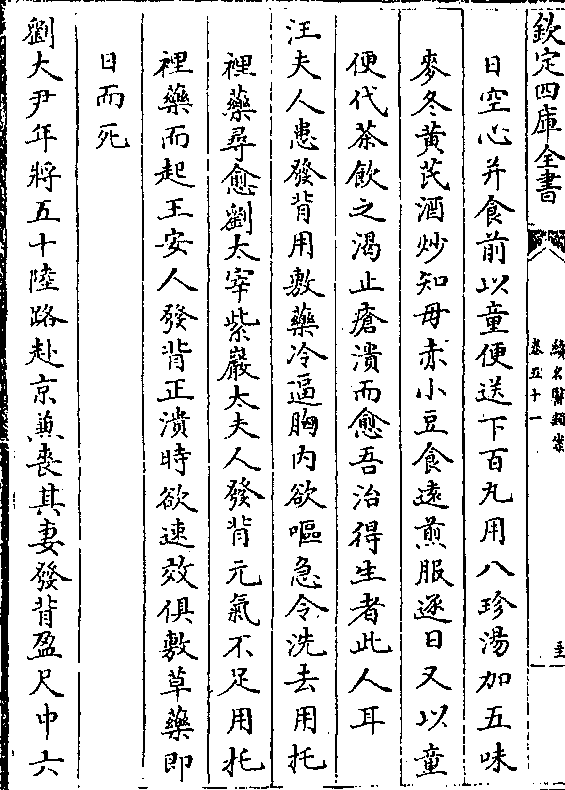 欽定四庫全書
續名醫類案
卷五十一
至
日空心并食前以童便送下百丸用八珍湯加五味
麥冬黃芪酒炒知母赤小豆食遠煎服逐日又以童
便代茶飲之渴止瘡潰而愈吾治得生者此人耳
汪夫人患發背用敷藥冷逼胸内欲嘔急令洗去用托
裡藥尋愈劉太宰紫巖太夫人發背元氣不足用托
裡藥而起王安人發背正潰時欲速效俱敷草藥即
日而死
劉大尹年將五十陸路赴京兼喪其妻發背盈尺中六